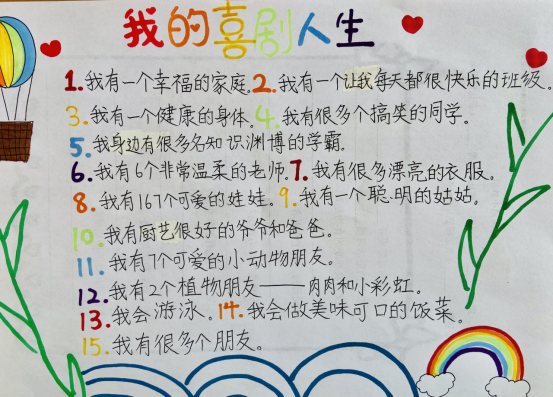 我的喜剧人生
1.我有一个幸福的家庭。2.我有一个让我每天都很快乐的班级。
3.我有一个健康的身体。4.我有很多个搞笑的同学。
5.我身边有很多名知识渊博的学霸。
6.我有6个非常温柔的老师。7.我有很多漂亮的衣服。
8.我有167个可爱的娃娃。9.我有一个聪明的姑姑。
10.我有厨艺很好的爷爷和爸爸。
11.我有7个可爱的小动物朋友。
12.我有2个植物朋友——肉肉和小彩虹。
13.我会游泳。14.我会做美味可口的饭菜。
15.我有很多个朋友。